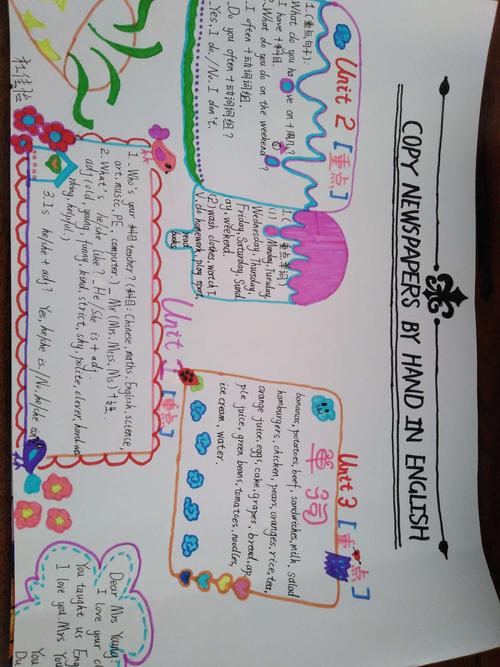 COPY NEWSPAPERS BY HAND IN ENGLISH
Unit 2 [重点]
1.(重点句子):
What do you have on +周几?
I have +科目.
2.What do you do on the weekend?
I often +动词词组.
Do you often +动词词组?
Yes, I do./No, I don't.
(重点单词)
(1) Monday, Tuesday,
Wednesday, Thursday,
Friday, Saturday, Sund
ay, weekend.
(2) wash clothes, watch T
V, do homework, play sport,
read
books
Unit 3 [重点]
单词
bananas, potatoes, beef, sandwiches, milk, salad
hamburgers, chicken, pears, oranges, rice, tea,
orange juice, eggs, cake, grapes, bread, ap
ple juice, green beans, tomatoes, noodles,
ice cream, water.
Unit 1 [重点]
1. Who's your 科目 teacher? (科目: Chinese, maths, English, science,
art, music, PE, computer.) Mr (Mrs. Miss. Ms) +姓.
2. What's he/she like? He/She is + adj.
adj (old, young, funny, kind, strict, shy, polite, clever, hardwor
king, helpful.)
3. Is he/she + adj? Yes, he/she is./No, he/she isn't.
Dear Mrs Young
I love your cl
You taught us Eng
I love you. Mrs Yo
You
Du